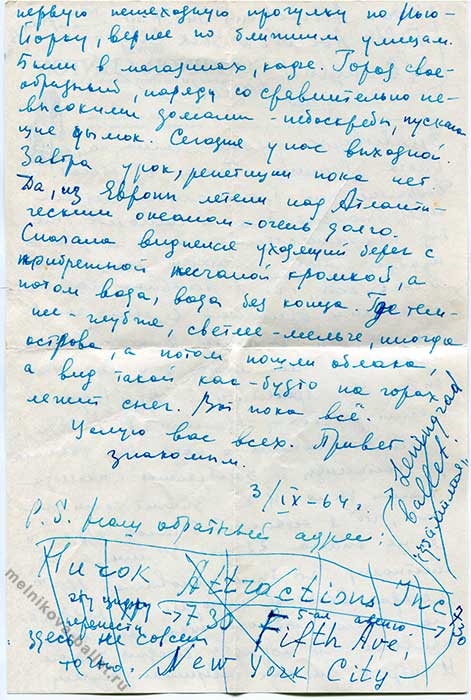 первую пешеходную прогулку по Нью-
Йорку, вернее по ближним улицам.
Были в магазинах, кафе. Город свое-
образный, наряду со сравнительно не-
высокими домами – небоскребы, пускаю-
щие дымок. Сегодня у нас выходной.
Завтра урок, репетиции пока нет
Да, из Европы летели над Атланти-
ческим океаном – очень долго.
Сначала виднелся уходящий берег с
прибрежной песчаной кромкой, а
потом вода, вода без конца. Где тем-
нее – глубже, светлее – мельче, иногда
острова, а потом пошли облака,
а вид такой как-будто на горах
лежит снег. Вот пока всё.
Целую вас всех. Привет
знакомым.
3/IX-64 г.
P.S. мой обратный адрес:
Leningrad
ballet!
(фамилия)
Hurok Attractions Inc
эту цифру
→ 730
5-ая авеню
→ 730
здесь не совсем
точно.
Fifth Ave,
New York City
melnikovaballet.ru